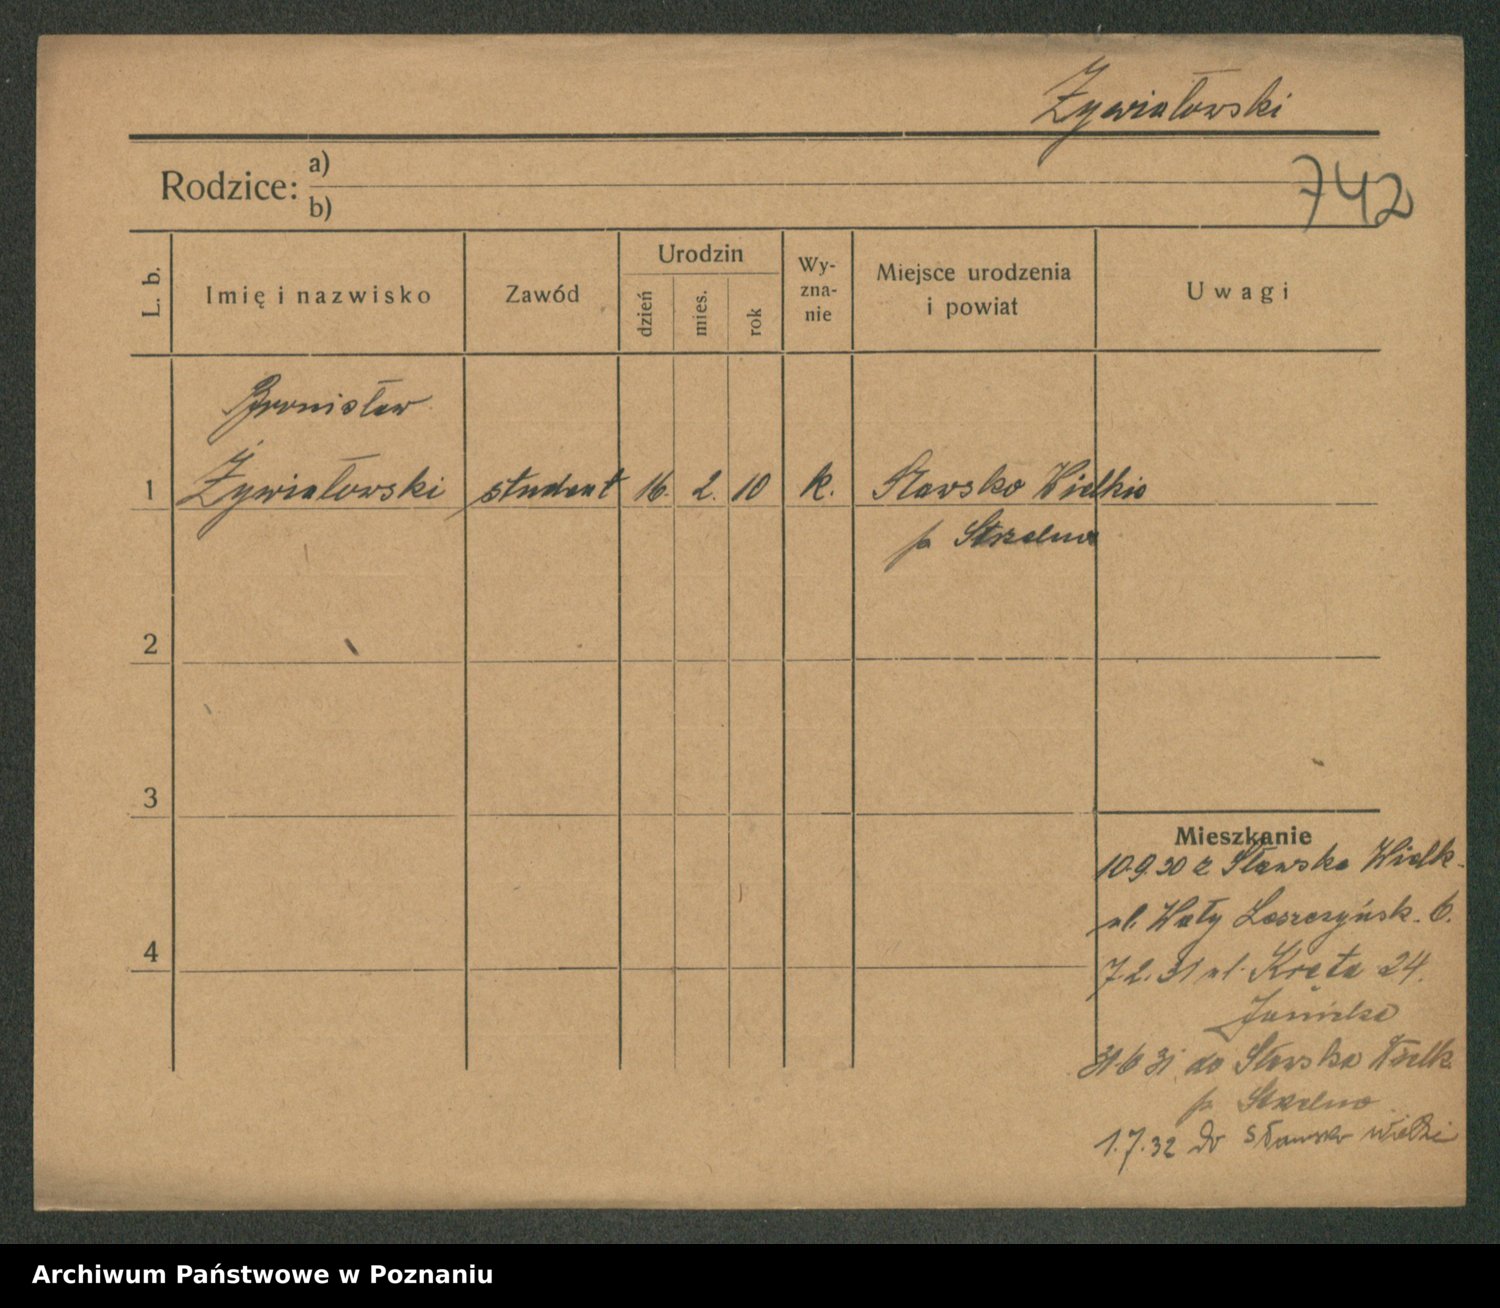 Żywiałowski
742
Rodzice: a)
b)
L. b.
Imię i nazwisko
Zawód
Urodzin
dzień
mies.
rok
Wy-
zna-
nie
Miejsce urodzenia
i powiat
Uwagi
Bronisław
1 Żywiałowski student 16. 2. 10 k. Sławsko Wielkie
p Strzelno
2
3
4
Mieszkanie
10.9.30 z Sławska Wielk.
ul. Wały Leszczyńsk. 6.
7.2.31 ul. Kręta 24.
31.6.31 do Sławska Wielk.
p. Strzelno
1.7.32 do Sławsko Wielki
Archiwum Państwowe w Poznaniu